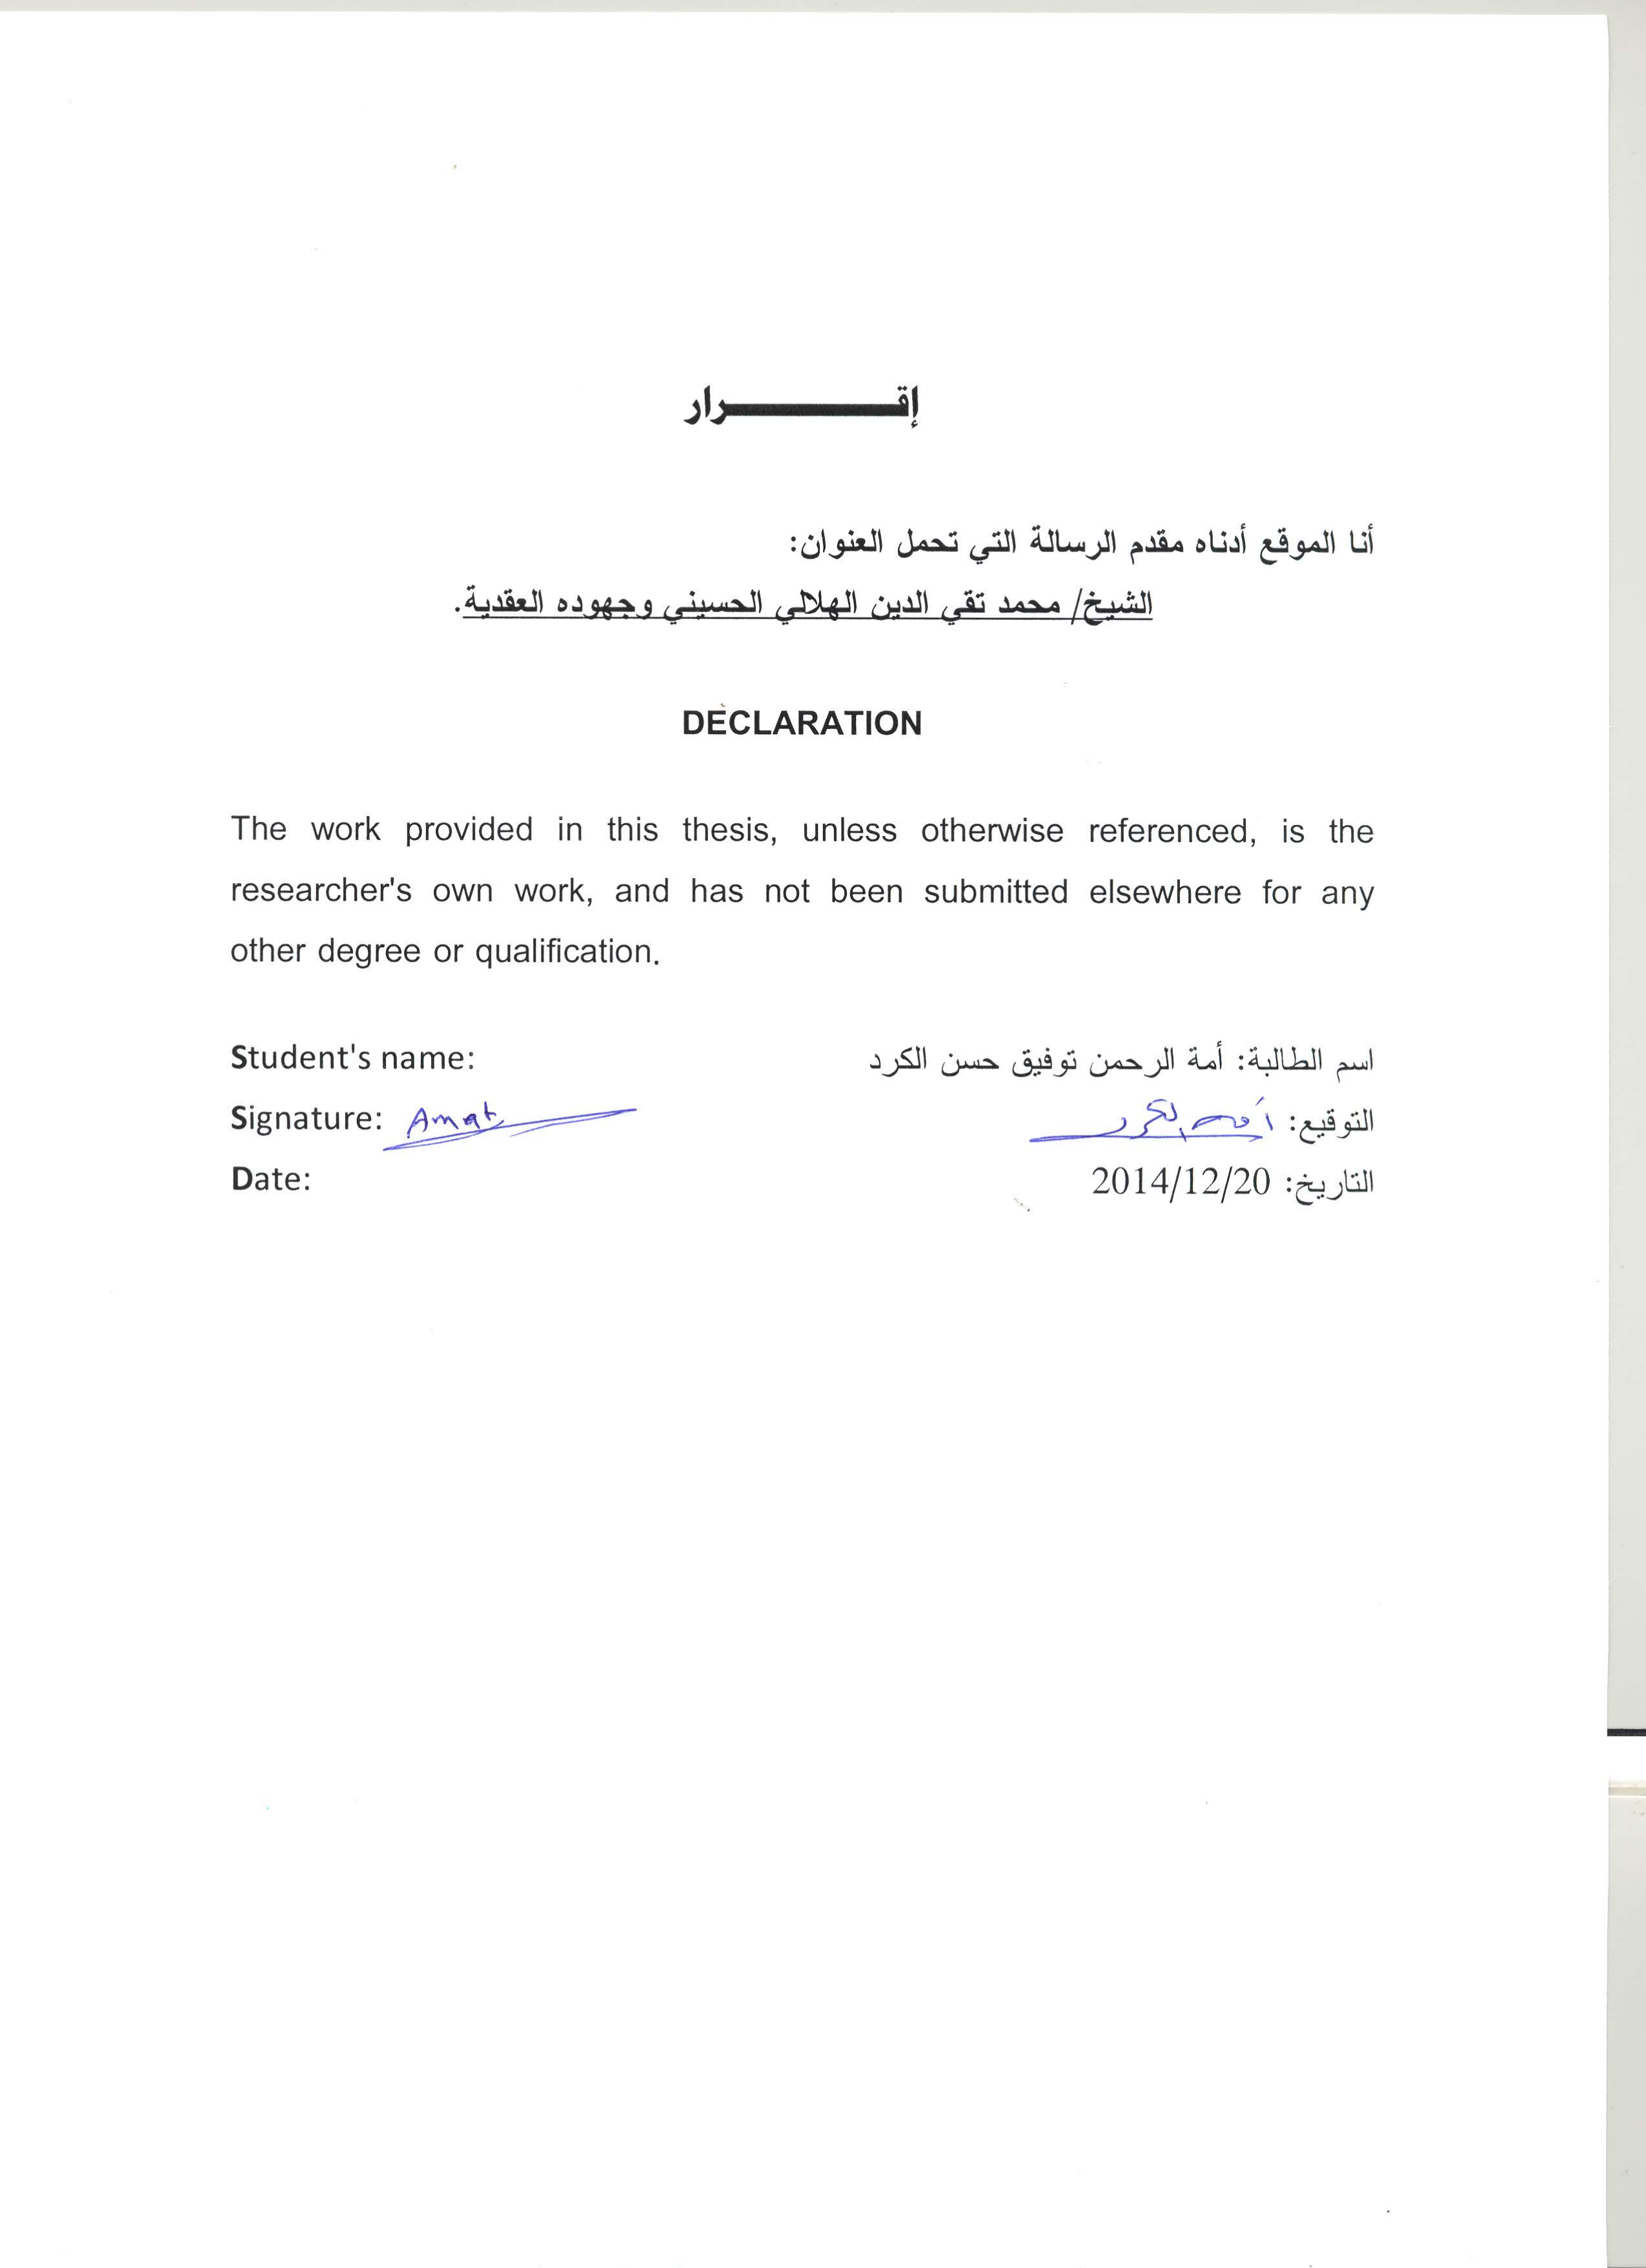 إقــــــــرار
أنا الموقع أدناه مقدم الرسالة التي تحمل العنوان:
الشيخ/ محمد تقي الدين الهلالي الحسيني وجهوده العقدية.
DECLARATION
The work provided in this thesis, unless otherwise referenced, is the
researcher's own work, and has not been submitted elsewhere for any
other degree or qualification.
Student's name: اسم الطالبة: أمة الرحمن توفيق حسن الكرد
Signature: Amat التوقيع: أمة الكرد
Date: التاريخ: 2014/12/20